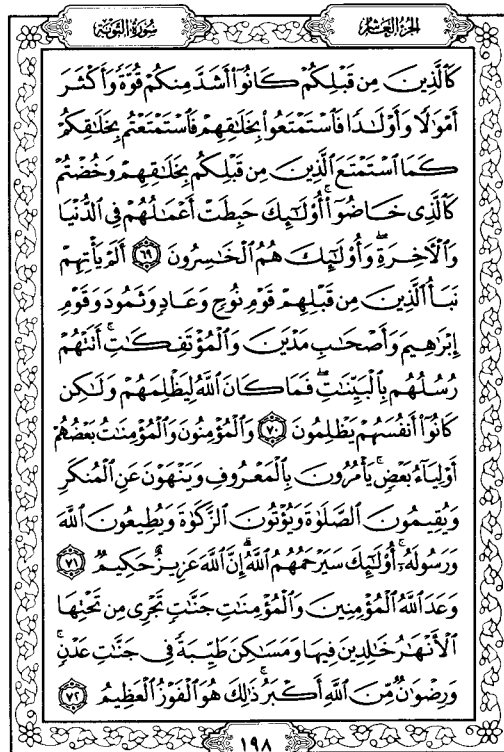 الجزء العاشر
سورة التوبة
كَالَّذِينَ مِن قَبْلِكُمْ كَانُوٓا۟ أَشَدَّ مِنكُمْ قُوَّةً وَأَكْثَرَ
أَمْوَٰلًا وَأَوْلَٰدًا فَٱسْتَمْتَعُوا۟ بِخَلَٰقِهِمْ فَٱسْتَمْتَعْتُم بِخَلَٰقِكُمْ
كَمَا ٱسْتَمْتَعَ ٱلَّذِينَ مِن قَبْلِكُم بِخَلَٰقِهِمْ وَخُضْتُمْ
كَٱلَّذِى خَاضُوٓا۟ ۚ أُو۟لَٰٓئِكَ حَبِطَتْ أَعْمَٰلُهُمْ فِى ٱلدُّنْيَا
وَٱلْءَاخِرَةِ ۖ وَأُو۟لَٰٓئِكَ هُمُ ٱلْخَٰسِرُونَ ٦٩ أَلَمْ يَأْتِهِمْ
نَبَأُ ٱلَّذِينَ مِن قَبْلِهِمْ قَوْمِ نُوحٍ وَعَادٍ وَثَمُودَ وَقَوْمِ
إِبْرَٰهِيمَ وَأَصْحَٰبِ مَدْيَنَ وَٱلْمُؤْتَفِكَٰتِ ۚ أَتَتْهُمْ
رُسُلُهُم بِٱلْبَيِّنَٰتِ ۖ فَمَا كَانَ ٱللَّهُ لِيَظْلِمَهُمْ وَلَٰكِن
كَانُوٓا۟ أَنفُسَهُمْ يَظْلِمُونَ ٧٠ وَٱلْمُؤْمِنُونَ وَٱلْمُؤْمِنَٰتُ بَعْضُهُمْ
أَوْلِيَآءُ بَعْضٍ ۚ يَأْمُرُونَ بِٱلْمَعْرُوفِ وَيَنْهَوْنَ عَنِ ٱلْمُنكَرِ
وَيُقِيمُونَ ٱلصَّلَوٰةَ وَيُؤْتُونَ ٱلزَّكَوٰةَ وَيُطِيعُونَ ٱللَّهَ
وَرَسُولَهُۥٓ ۚ أُو۟لَٰٓئِكَ سَيَرْحَمُهُمُ ٱللَّهُ ۗ إِنَّ ٱللَّهَ عَزِيزٌ حَكِيمٌ ٧١
وَعَدَ ٱللَّهُ ٱلْمُؤْمِنِينَ وَٱلْمُؤْمِنَٰتِ جَنَّٰتٍ تَجْرِى مِن تَحْتِهَا
ٱلْأَنْهَٰرُ خَٰلِدِينَ فِيهَا وَمَسَٰكِنَ طَيِّبَةً فِى جَنَّٰتِ عَدْنٍ ۚ
وَرِضْوَٰنٌ مِّنَ ٱللَّهِ أَكْبَرُ ۚ ذَٰلِكَ هُوَ ٱلْفَوْزُ ٱلْعَظِيمُ ٧٢
١٩٨